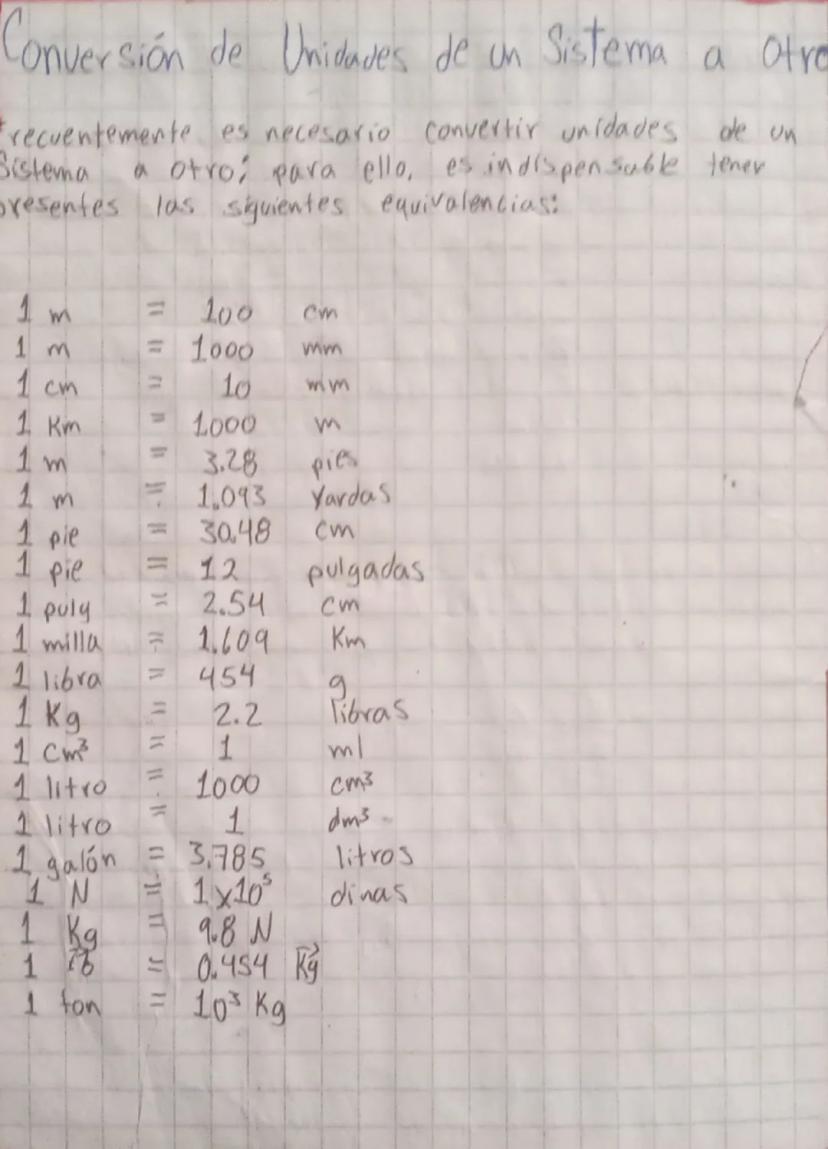 Conversión de Unidades de un Sistema a otro
frecuentemente es necesario convertir unidades de un
Sistema a otro; para ello, es indispensable tener
presentes las siguientes equivalencias:
1 m = 100 cm
1 m = 1000 mm
1 cm = 10 mm
1 Km = 1000 m
1 m = 3.28 pies
1 m = 1.093 Yardas
1 pie = 30.48 cm
1 pie = 12 pulgadas
1 pulg = 2.54 cm
1 milla = 1.609 Km
1 libra = 454 g
1 Kg = 2.2 libras
1 cm³ = 1 ml
1 litro = 1000 cm³
1 litro = 1 dm³
1 galón = 3.785 litros
1 N = 1x10⁵ dinas
1 Kg = 9.8 N
1 lb = 0.454 Kg
1 ton = 10³ Kg